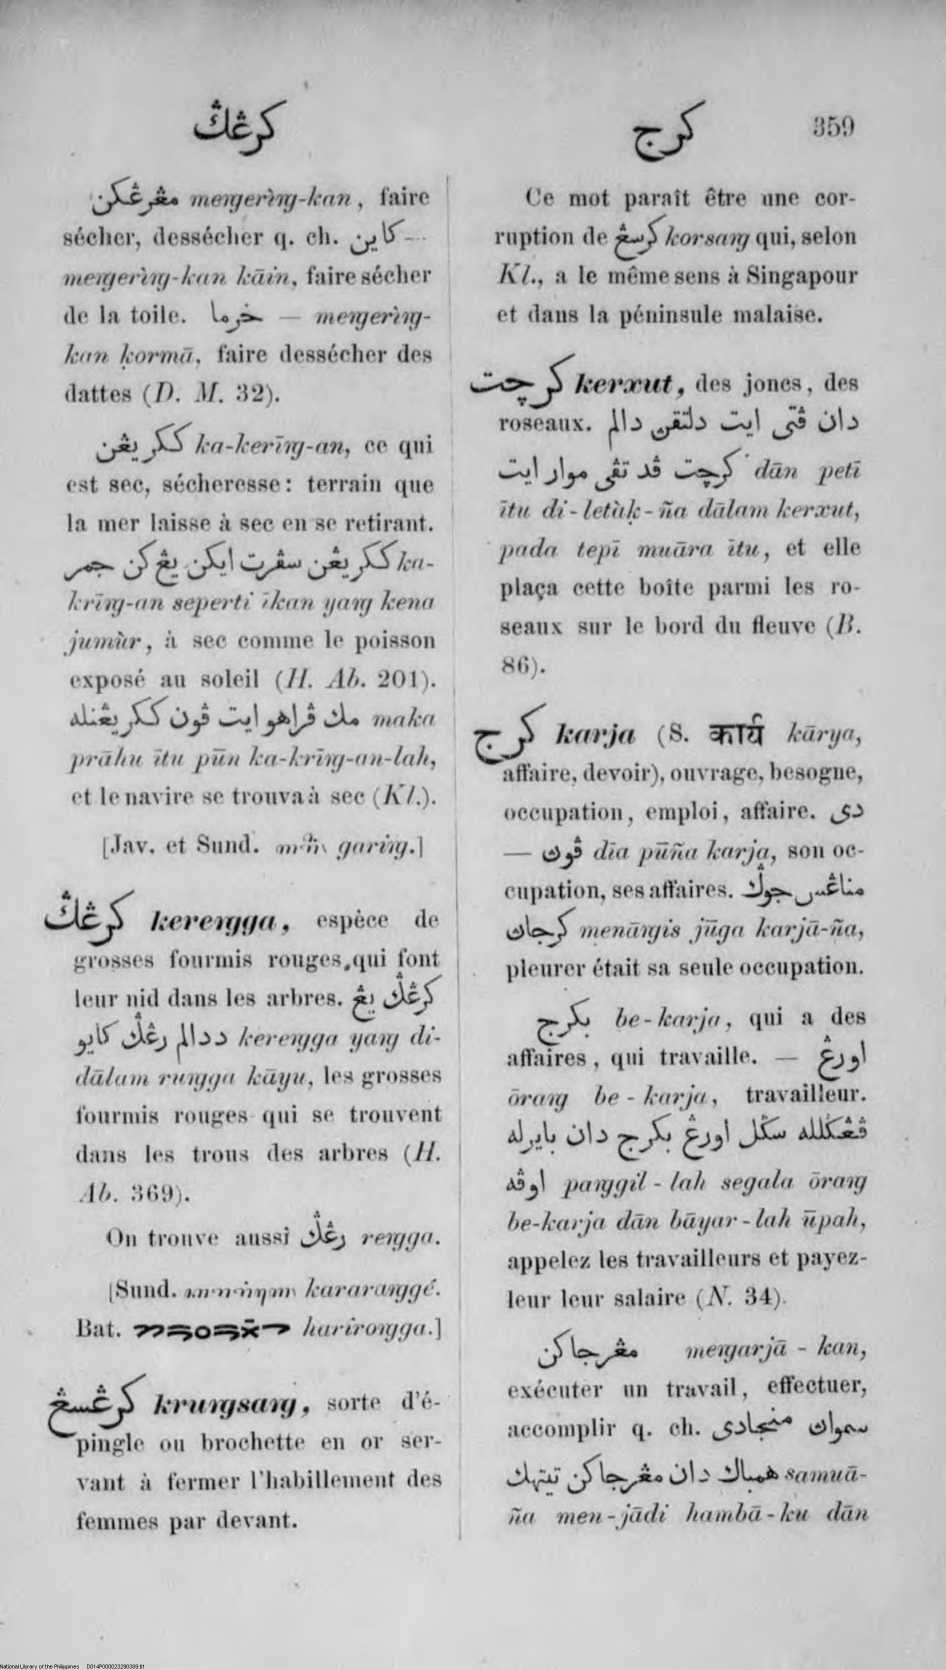 کرڠݢ
کرج
359
مڠرڠکن meꞑgerìꞑg-kan, faire
sécher, dessécher q. ch. کاین —
meꞑgerìꞑg-kan kāin, faire sécher
de la toile. خرما — meꞑgerìꞑg-
kan ḳormā, faire dessécher des
dattes (D. M. 32).
ککریڠن ka-kerīꞑg-an, ce qui
est sec, sécheresse: terrain que
la mer laisse à sec en se retirant.
ککریڠن سڤرت ایکن یڠ کن جمر ka-
krīꞑg-an seperti īkan yaꞑg kena
jumùr, à sec comme le poisson
exposé au soleil (H. Ab. 201).
مك ڤراهو ایت ڤون ککریڠنله maka
prāhu ītu pūn ka-krīꞑg-an-lah,
et le navire se trouva à sec (Kl.).
[Jav. et Sund. gariꞑg.]
کرڠݢ kereꞑgga, espèce de
grosses fourmis rouges, qui font
leur nid dans les arbres. کرڠݢ یڠ
ددالم رڠݢ کایو kereꞑgga yaꞑg di-
dālam ruꞑgga kāyu, les grosses
fourmis rouges qui se trouvent
dans les trous des arbres (H.
Ab. 369).
On trouve aussi رڠݢ reꞑgga.
[Sund. kararaꞑggé.
Bat. hariroꞑgga.]
کرڠسڠ kruꞑgsaꞑg, sorte d'é-
pingle ou brochette en or ser-
vant à fermer l'habillement des
femmes par devant.
Ce mot paraît être une cor-
ruption de کرسڠ korsaꞑg qui, selon
Kl., a le même sens à Singapour
et dans la péninsule malaise.
کرچت kerxut, des joncs, des
roseaux. دان ڤتی ایت دلتقن دالم
کرچت ڤد تڤی موار ایت dān petī
ītu di-letàḳ-ña dālam kerxut,
pada tepī muāra ītu, et elle
plaça cette boîte parmi les ro-
seaux sur le bord du fleuve (B.
86).
کرج karja (S. कार्य kārya,
affaire, devoir), ouvrage, besogne,
occupation, emploi, affaire. دی
— ڤوڽ dīa pūña karja, son oc-
cupation, ses affaires. مناڠس جوݢ
کرجاڽ menāꞑgis jūga karjā-ña,
pleurer était sa seule occupation.
بکرج be-karja, qui a des
affaires, qui travaille. — اورڠ
ōraꞑg be-karja, travailleur.
ڤڠݢلله سݢل اورڠ بکرج دان بایرله
اوڤه paꞑggil-lah segala ōraꞑg
be-karja dān bāyar-lah ūpah,
appelez les travailleurs et payez-
leur leur salaire (N. 34).
مڠرجاکن meꞑgarjā-kan,
exécuter un travail, effectuer,
accomplir q. ch. سمواڽ منجادی
همباك دان مڠرجاکن تیتهك samuā-
ña men-jādi hambā-ku dān
National Library of the Philippines